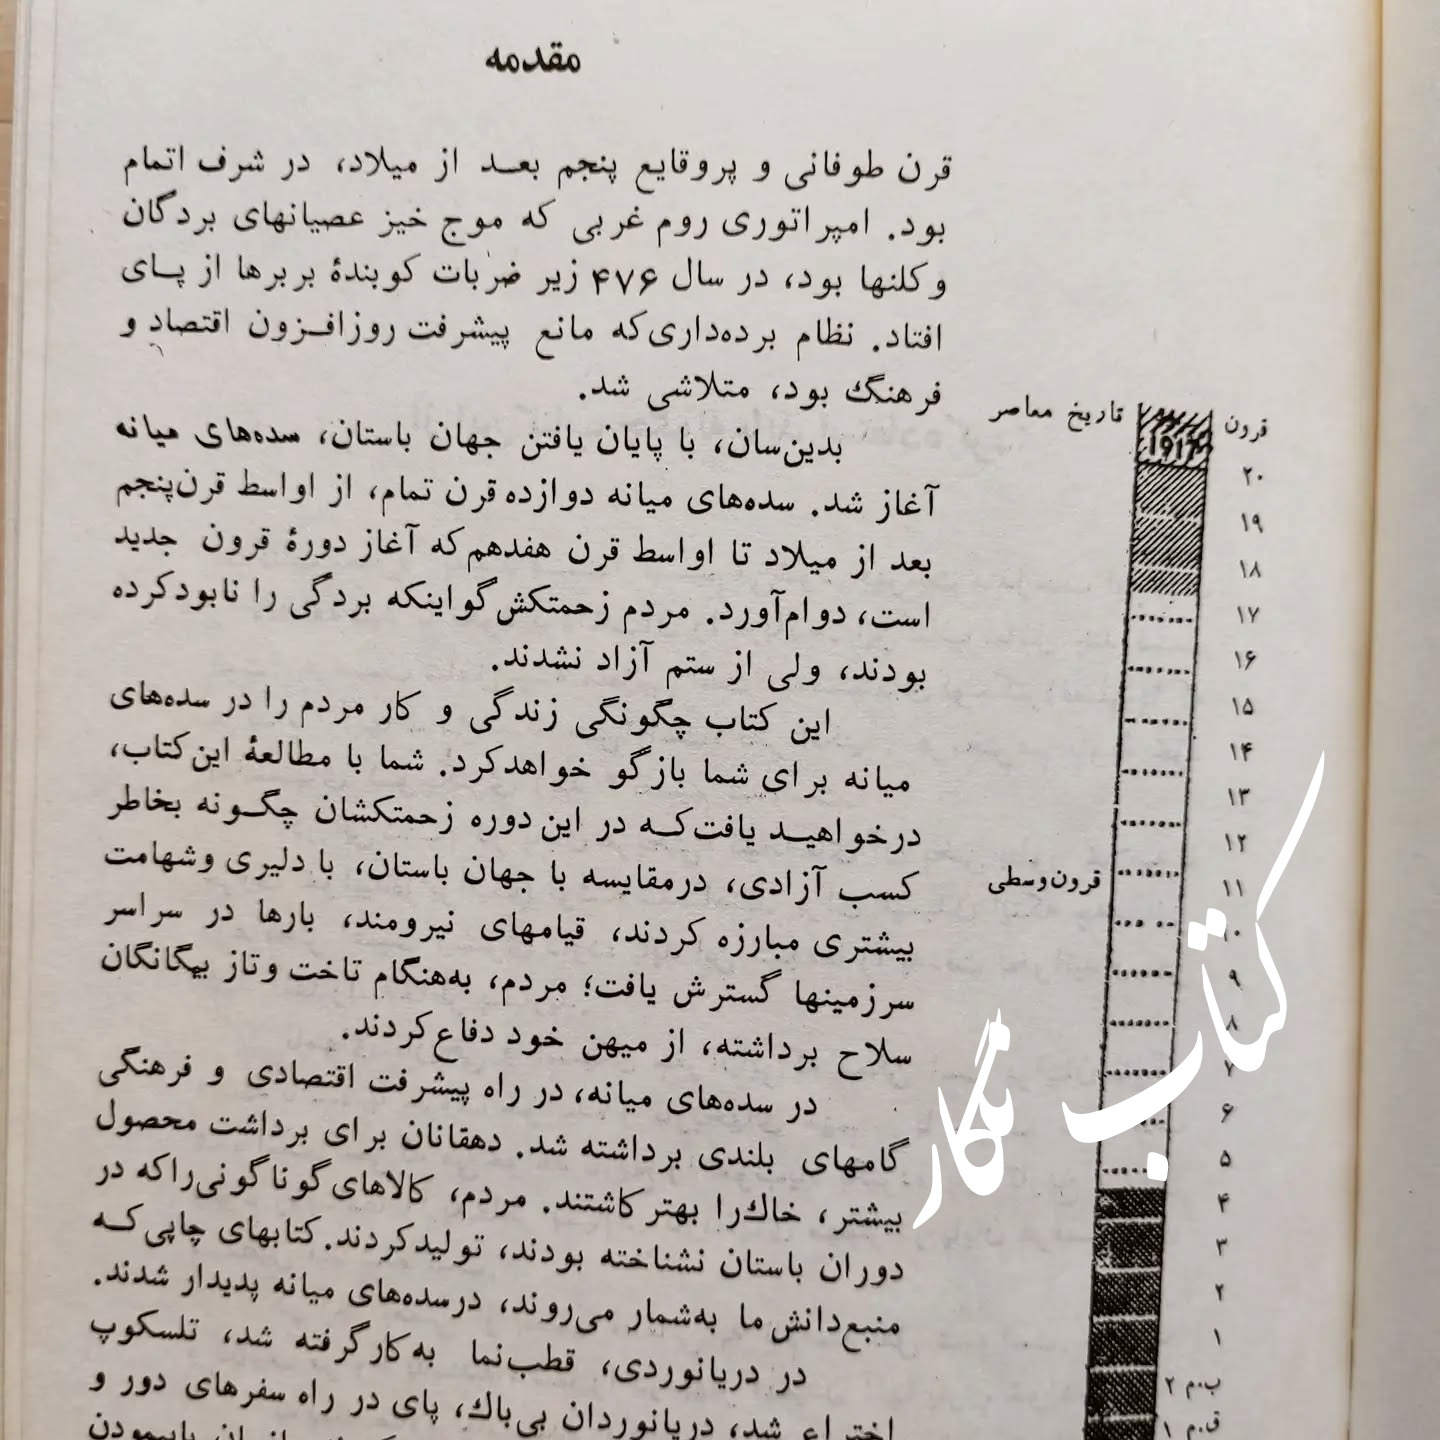 مقدمه
قرن طوفانی و پروقایع پنجم بعد از میلاد، در شرف اتمام
بود. امپراتوری روم غربی که موج خیز عصیانهای بردگان
و کلنها بود، در سال ۴۷۶ زیر ضربات کوبندهٔ بربرها از پای
افتاد. نظام برده‌داری که مانع پیشرفت روزافزون اقتصاد و
فرهنگ بود، متلاشی شد.
بدین‌سان، با پایان یافتن جهان باستان، سده‌های میانه
آغاز شد. سده‌های میانه دوازده قرن تمام، از اواسط قرن پنجم
بعد از میلاد تا اواسط قرن هفدهم که آغاز دورهٔ قرون جدید
است، دوام آورد. مردم زحمتکش گواینکه بردگی را نابود کرده
بودند، ولی از ستم آزاد نشدند.
این کتاب چگونگی زندگی و کار مردم را در سده‌های
میانه برای شما بازگو خواهد کرد. شما با مطالعهٔ این کتاب،
درخواهید یافت که در این دوره زحمتکشان چگونه بخاطر
کسب آزادی، درمقایسه با جهان باستان، با دلیری و شهامت
بیشتری مبارزه کردند، قیامهای نیرومند، بارها در سراسر
سرزمینها گسترش یافت؛ مردم، به‌هنگام تاخت و تاز بیگانگان
سلاح برداشته، از میهن خود دفاع کردند.
در سده‌های میانه، در راه پیشرفت اقتصادی و فرهنگی
گامهای بلندی برداشته شد. دهقانان برای برداشت محصول
بیشتر، خاك را بهتر کاشتند. مردم، کالاهای گوناگونی را که در
دوران باستان نشناخته بودند، تولید کردند. کتابهای چاپی که
منبع دانش ما به‌شمار می‌روند، درسده‌های میانه پدیدار شدند.
در دریانوردی، قطب‌نما به‌کار گرفته شد، تلسکوپ
اختراع شد، دریانوردان بی‌باك، پای در راه سفرهای دور و
قرون
تاریخ معاصر
۱۹۱۷
۲۰
۱۹
۱۸
۱۷
۱۶
۱۵
۱۴
۱۳
۱۲
قرون وسطی
۱۱
۱۰
۹
۸
۷
۶
۵
۴
۳
۲
۱
ب.م ۲
ق.م ۱
کتاب نگار